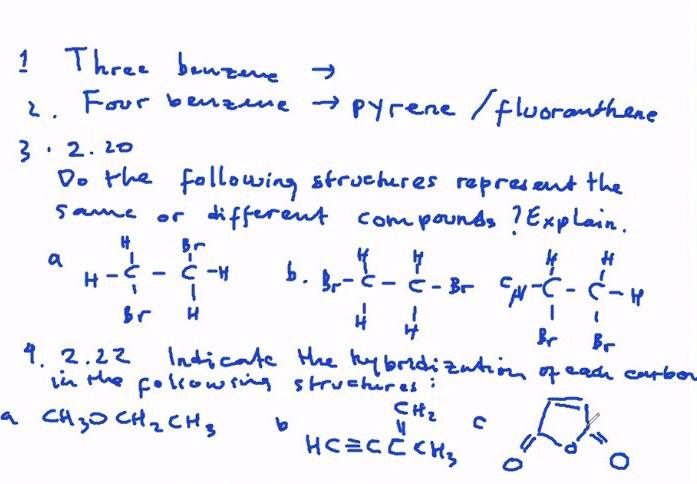 1 Three benzene →
2. Four benzene → pyrene / fluoranthene
3. 2.20
Do the following structures represent the
same or different compounds? Explain.
H Br H H H H
a H-C-C-H b. Br-C-C-Br C H-C-C-H
Br H H H Br Br
4. 2.22 Indicate the hybridization of each carbon
in the following structures:
CH2
a CH3OCH2CH3 b HC≡CCCH3 c O O O